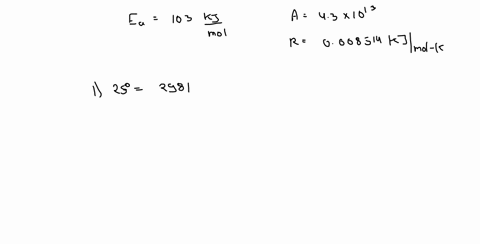 Ea = 103 kJ/mol
A = 4.3 × 10¹³
R = 0.008314 kJ/mol-K
1) 25° = 298 |